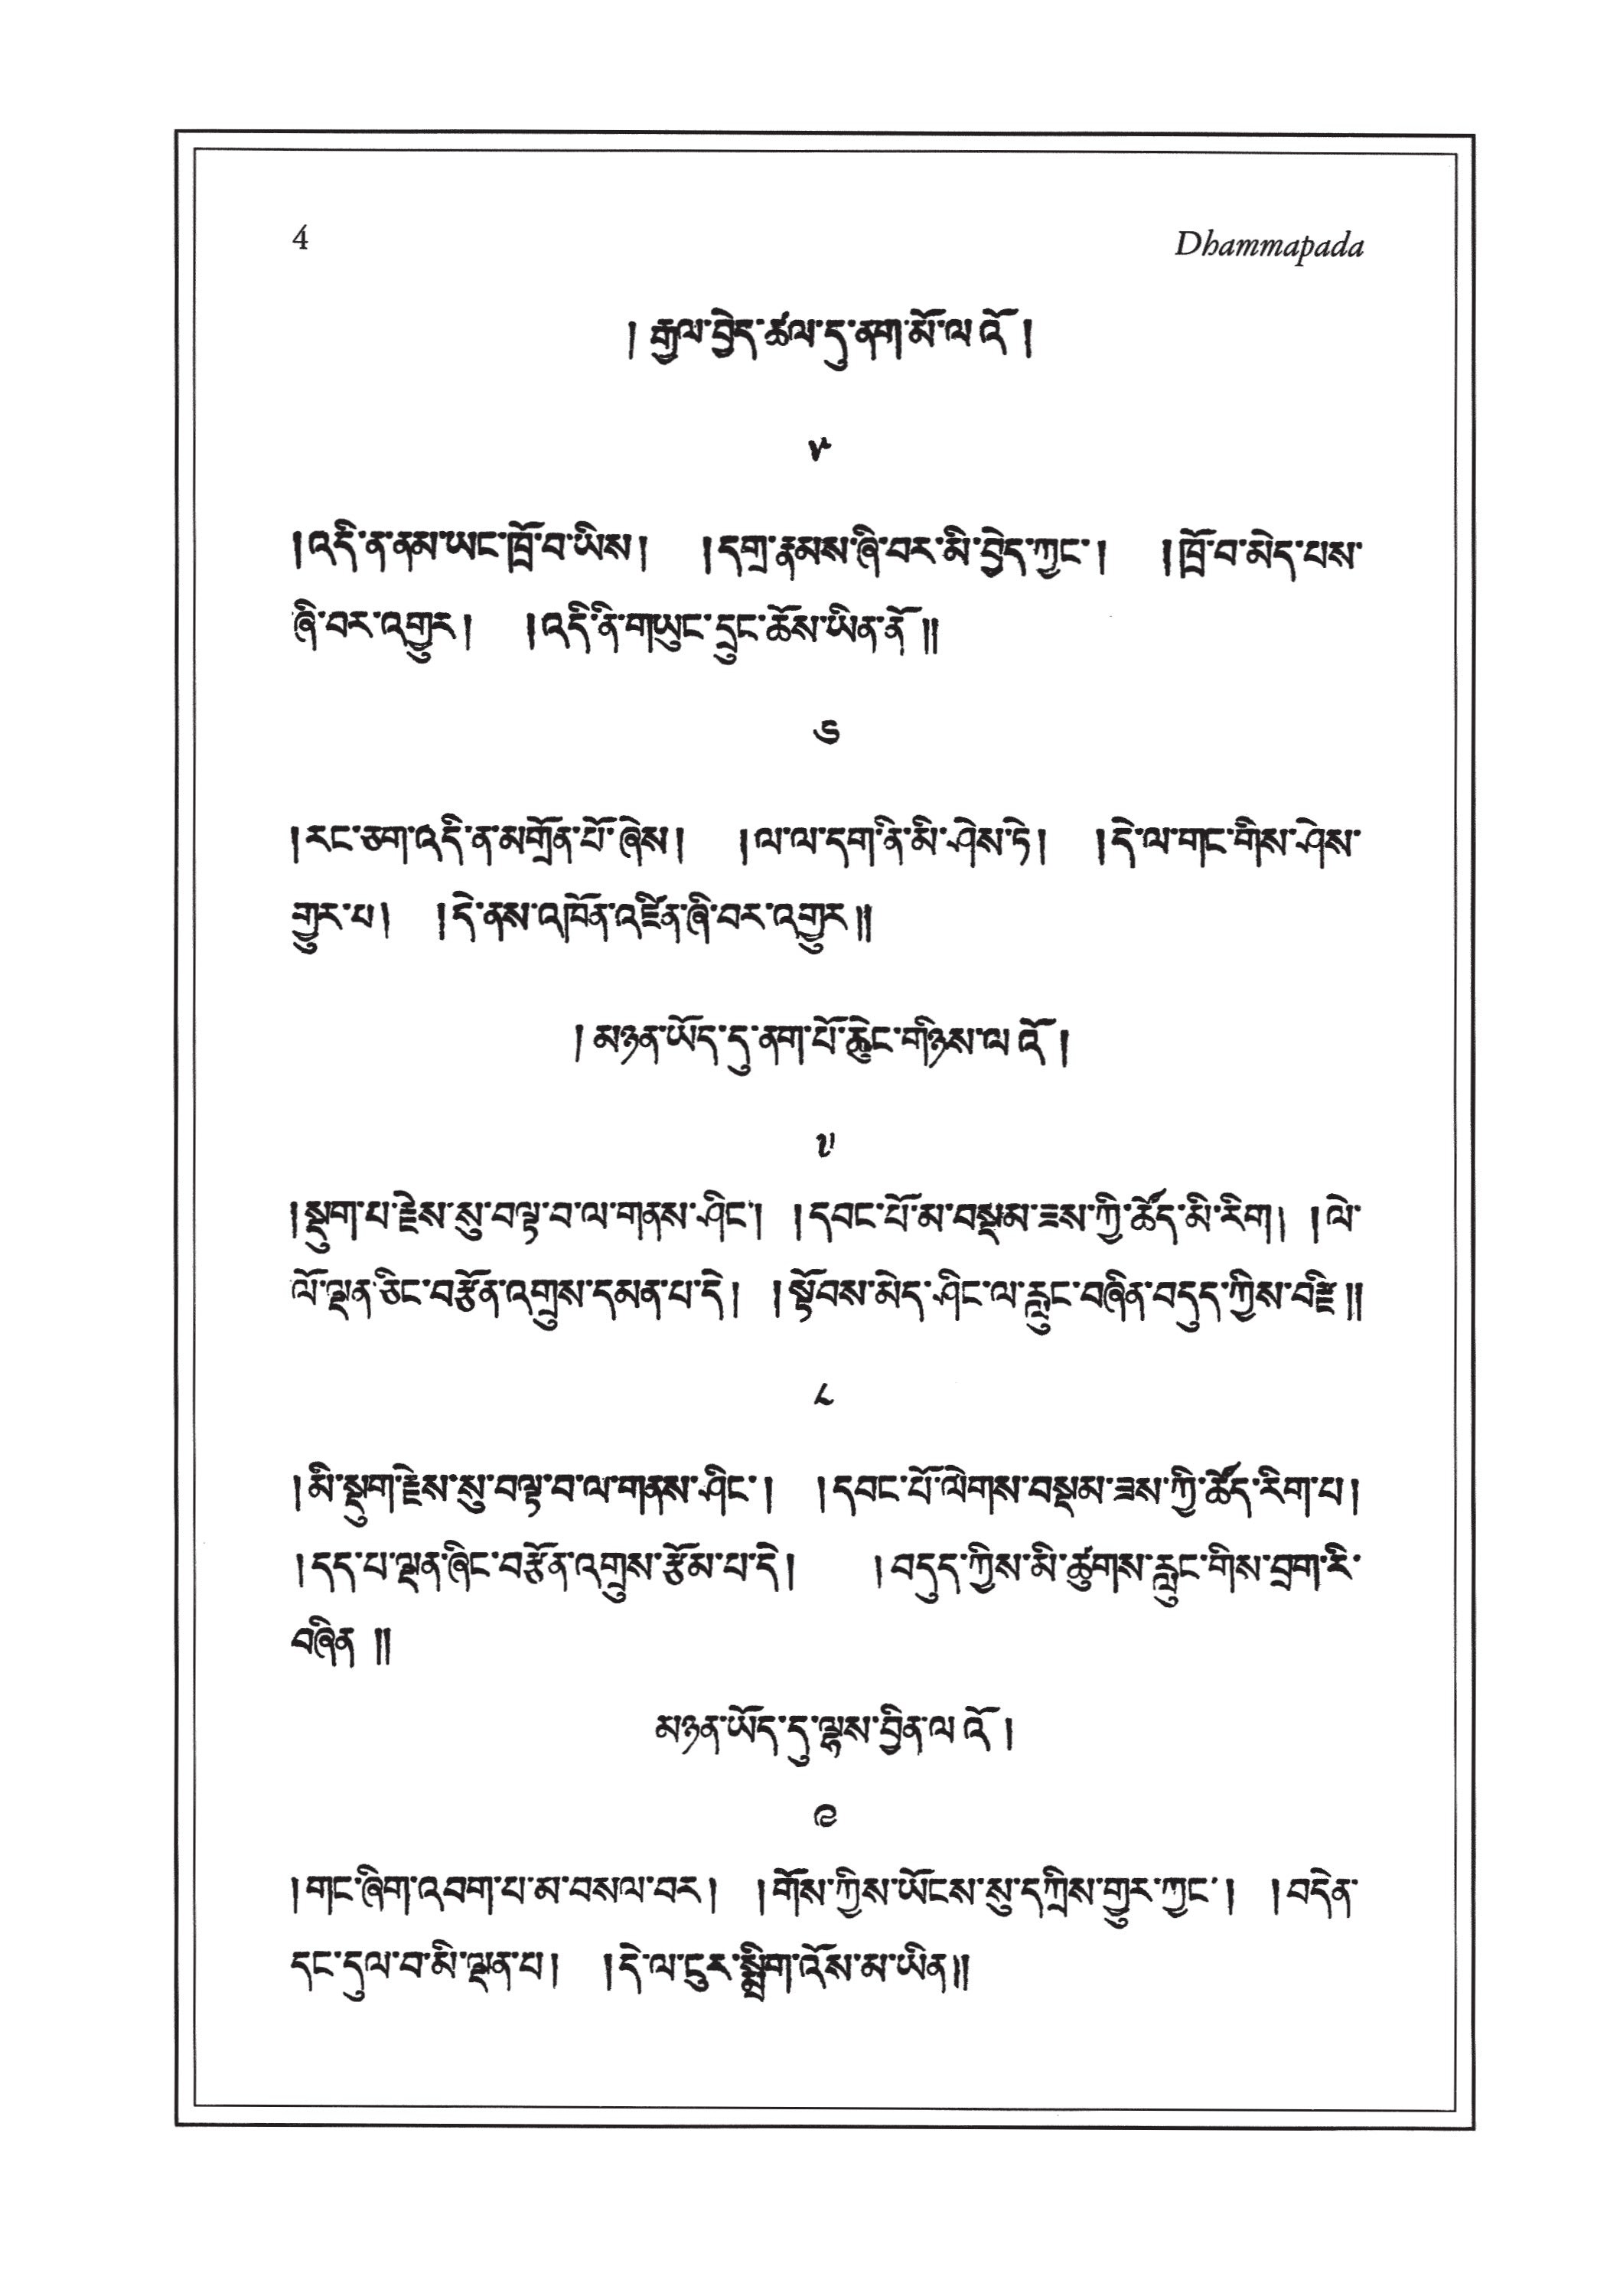 4 Dhammapada
། རྒྱལ་བྱེད་ཚལ་དུ་ནག་མོ་ལ འོ །
༥
།འདི་ན་ནམ་ཡང་ཁྲོ་བ་ཡིས། །དགྲ་རྣམས་ཞི་བར་མི་བྱེད་ཀྱང་། །ཁྲོ་བ་མེད་པས་
ཞི་བར་འགྱུར། །འདི་ནི་གཡུང་དྲུང་ཆོས་ཡིན་ནོ །།
༦
།རང་ཅག་འདི་ན་མགྲོན་པོ་ཞེས། །ལ་ལ་དག་ནི་མི་ཤེས་ཏེ། །དེ་ལ་གང་གིས་ཤེས་
གྱུར་པ། །དེ་ནས་འཁོན་འཛིན་ཞི་བར་འགྱུར།།
། མཉན་ཡོད་དུ་ནག་པོ་ཆེུང་གཉིས་ལ འོ །
༧
།སྡུག་པ་རྗེས་སུ་བལྟ་བ་ལ་གནས་ཤིང་། །དབང་པོ་མ་བསྡམ་ཟས་ཀྱི་ཚོད་མི་རིག། །ལེ་
ལོ་ལྡན་ཅིང་བརྩོན་འགྲུས་དམན་པ་དེ། །སྟོབས་མེད་ཤིང་ལ་རླུང་བཞིན་བདུད་ཀྱིས་བརྫི །།
༨
།མི་སྡུག་རྗེས་སུ་བལྟ་བ་ལ་གནས་ཤིང་། །དབང་པོ་ལེགས་བསྡམ་ཟས་ཀྱི་ཚོད་རིག་པ།
།དད་པ་ལྡན་ཞིང་བརྩོན་འགྲུས་རྩོམ་པ་དེ། །བདུད་ཀྱིས་མི་ཚུགས་རླུང་གིས་བྲག་རི་
བཞིན །།
མཉན་ཡོད་དུ་ལྷས་བྱིན་ལ འོ །
༩
།གང་ཞིག་འབག་པ་མ་བསལ་བར། །གོས་ཀྱིས་ཡོངས་སུ་དཀྲིས་གྱུར་ཀྱང་། །བདེན་
དང་དུལ་བ་མི་ལྡན་པ། །དེ་ལ་ངུར་སྨྲིག་འོས་མ་ཡིན།།